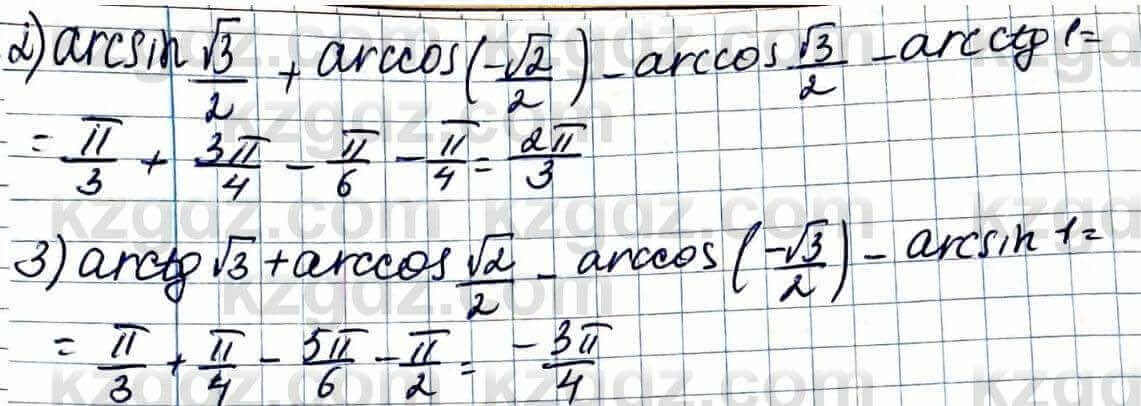 2) arcsin √3/2 + arccos(-√2/2) - arccos √3/2 - arcctg 1 =
= π/3 + 3π/4 - π/6 - π/4 = 2π/3
3) arctg √3 + arccos √2/2 - arccos (-√3/2) - arcsin 1 =
= π/3 + π/4 - 5π/6 - π/2 = -3π/4
kzgdz.com